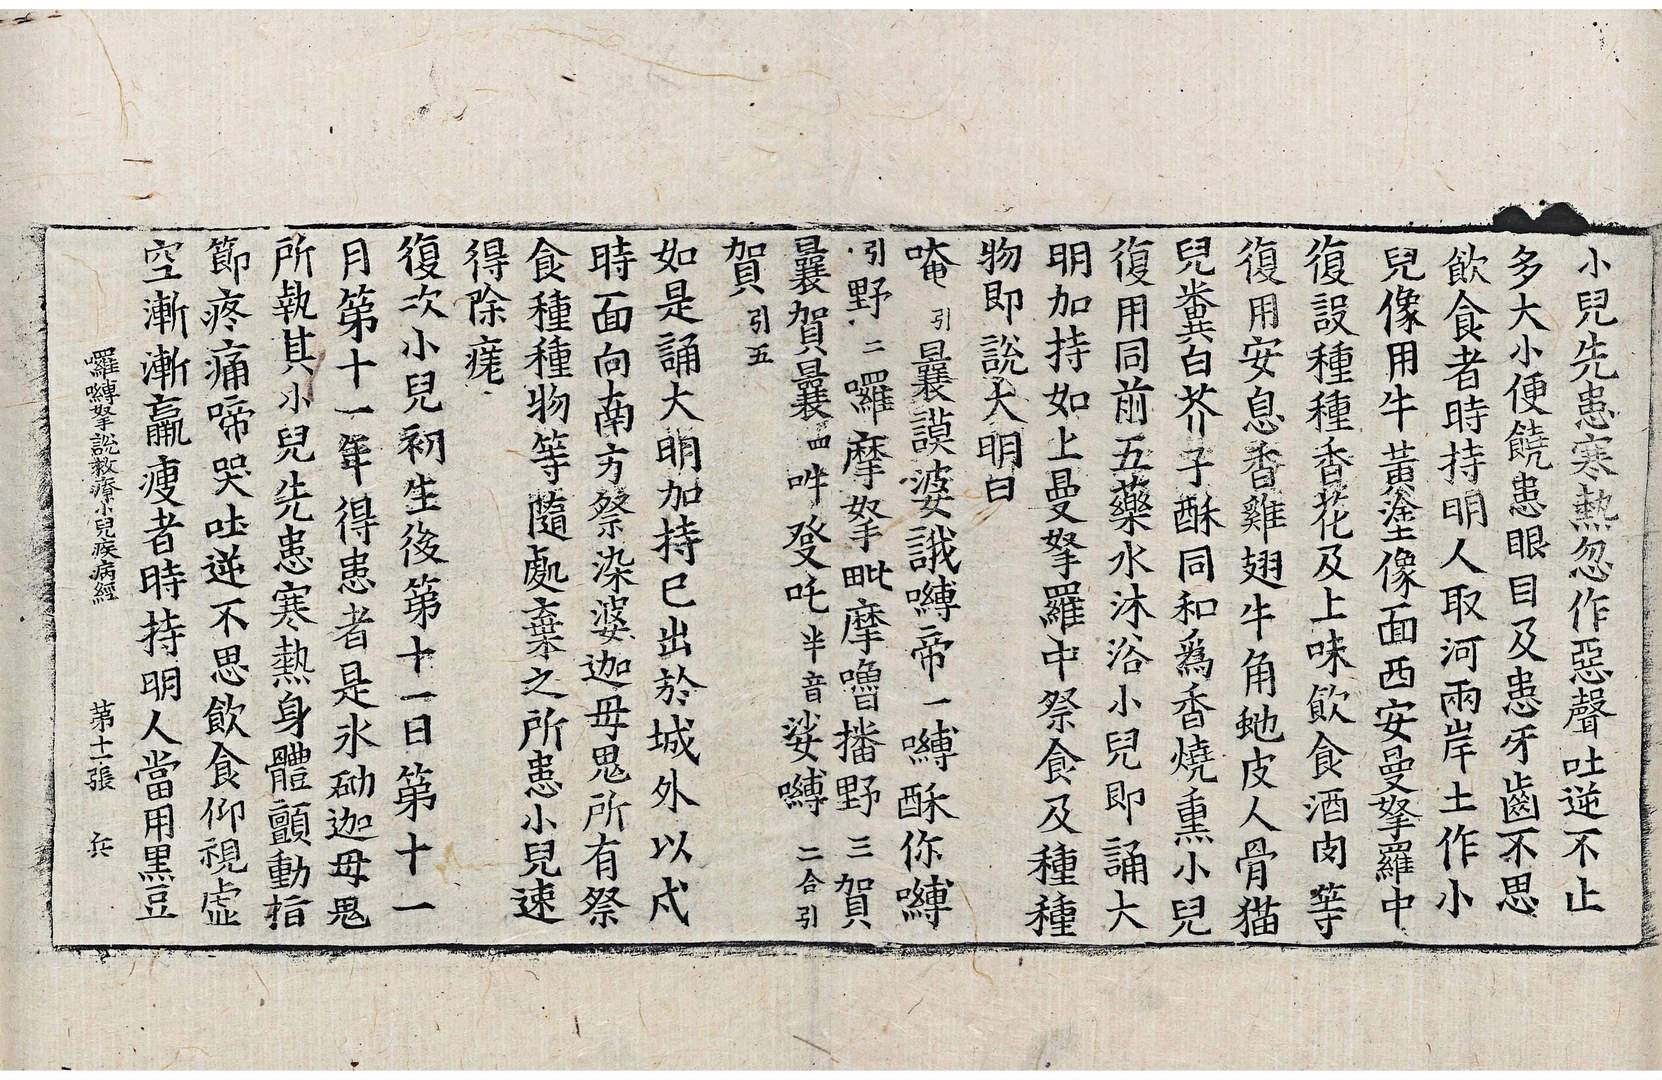 小兒先患寒熱忽作惡聲吐逆不止
多大小便饒患眼目及患牙齒不思
飲食者時持明人取河兩岸土作小
兒像用牛黃塗像面西安曼拏羅中
復設種種香花及上味飲食酒肉等
復用安息香雞翅牛角虵皮人骨猫
兒糞白芥子酥同和爲香燒熏小兒
復用同前五藥水沐浴小兒即誦大
明加持如上曼拏羅中祭食及種種
物即說大明曰
唵引曩謨婆誐嚩帝一嚩酥你嚩
引野二囉摩拏毗摩嚕播野三賀
曩賀曩四吽發吒半音娑嚩二合引
賀引五
如是誦大明加持已出於城外以戌
時面向南方祭染婆迦母鬼所有祭
食種種物等隨處棄之所患小兒速
得除瘥
復次小兒初生後第十一日第十一
月第十一年得患者是氷砌迦母鬼
所執其小兒先患寒熱身體顫動指
節疼痛啼哭吐逆不思飲食仰視虛
空漸漸羸瘦者時持明人當用黑豆
囉嚩拏說救療小兒疾病經 第十一張 兵